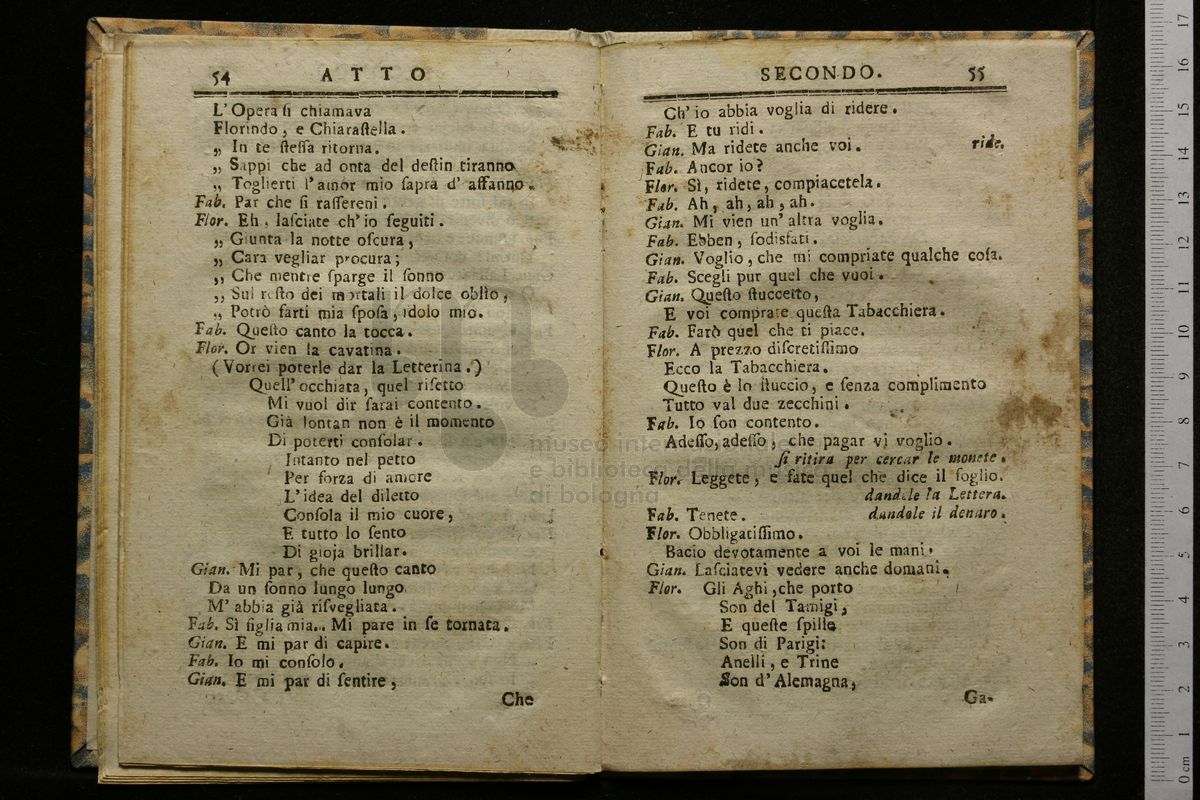 54 ATTO
L'Opera ſi chiamava
Florindo, e Chiaraſtella.
„ In te ſteſſa ritorna.
„ Sappi che ad onta del deſtin tiranno
„ Toglierti l'amor mio ſaprà d'affanno.
Fab. Par che ſi raſſereni.
Flor. Eh, laſciate ch'io ſeguiti.
„ Giunta la notte oſcura,
„ Cara vegliar procura;
„ Che mentre ſparge il ſonno
„ Sul reſto dei mortali il dolce oblìo,
„ Potrò farti mia ſpoſa, idolo mio.
Fab. Queſto canto la tocca.
Flor. Or vien la cavatina.
(Vorrei poterle dar la Letterina.)
Quell'occhiata, quel riſetto
Mi vuol dir ſarai contento.
Già lontan non è il momento
Di poterti conſolar.
Intanto nel petto
Per forza di amore
L'idea del diletto
Conſola il mio cuore,
E tutto lo ſento
Di gioja brillar.
Gian. Mi par, che queſto canto
Da un ſonno lungo lungo
M'abbia già riſvegliata.
Fab. Sì figlia mia... Mi pare in ſe tornata.
Gian. E mi par di capire.
Fab. Io mi conſolo.
Gian. E mi par di ſentire,
Che
SECONDO. 55
Ch'io abbia voglia di ridere.
Fab. E tu ridi.
Gian. Ma ridete anche voi. ride.
Fab. Ancor io?
Flor. Sì, ridete, compiacetela.
Fab. Ah, ah, ah, ah.
Gian. Mi vien un'altra voglia.
Fab. Ebben, ſodisfati.
Gian. Voglio, che mi compriate qualche coſa.
Fab. Scegli pur quel che vuoi.
Gian. Queſto ſtuccetto,
E voi comprate queſta Tabacchiera.
Fab. Farò quel che ti piace.
Flor. A prezzo diſcretiſſimo
Ecco la Tabacchiera.
Queſto è lo ſtuccio, e ſenza complimento
Tutto val due zecchini.
Fab. Io ſon contento.
Adeſſo, adeſſo, che pagar vi voglio.
ſi ritira per cercar le monete.
Flor. Leggete, e fate quel che dice il foglio.
dandole la Lettera.
Fab. Tenete. dandole il denaro.
Flor. Obbligatiſſimo.
Bacio devotamente a voi le mani.
Gian. Laſciatevi vedere anche domani.
Flor. Gli Aghi, che porto
Son del Tamigi,
E queſte ſpille
Son di Parigi:
Anelli, e Trine
Son d'Alemagna,
Ga-
museo inte
e biblioteca della mu
di bologna
0 cm 1 2 3 4 5 6 7 8 9 10 11 12 13 14 15 16 17